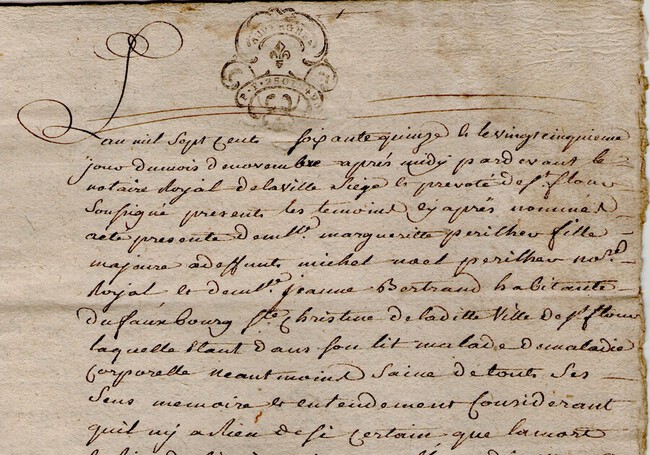 AUVERGNE
L'an mil sept cents soixante quinze & le vingt cinquieme
jour du mois de novembre après midy pardevant le
notaire Royal de la ville siege & prevoté de St. flour
soussigné presents les temoins cy après nommes
a été presente demlle. margueritte perilher fille
majeure a deffunts michel noel perilher nore.
Royal & demlle. jeanne Bertrand habitante
du faux bourg Ste Christine de la ditte ville de St. flour
laquelle Etant dans son lit malade de maladie
corporelle neantmoins saine de touts ses
sens memoire & entendement Considerant
quil ny a Rien de si certain que la mort